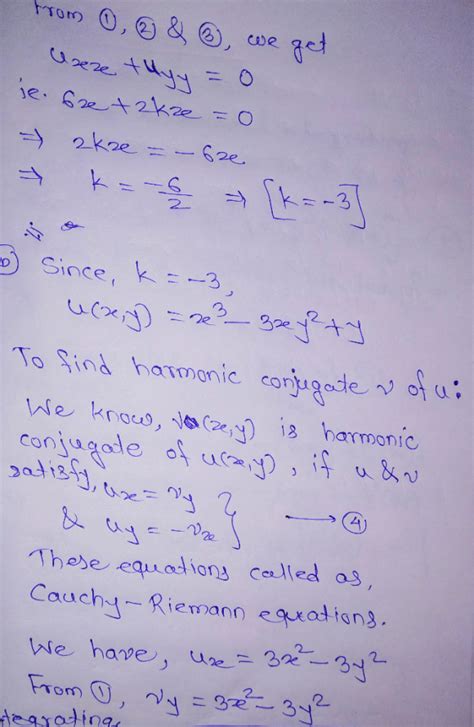 From ①, ② & ③, we get
uxx + uyy = 0
ie. 6x + 2kx = 0
⇒ 2kx = -6x
⇒ k = -6/2 ⇒ [k = -3]
b) Since, k = -3,
u(x,y) = x³ - 3xy² + y
To find harmonic conjugate v of u:
We know, v(x,y) is harmonic
conjugate of u(x,y), if u & v
satisfy, ux = vy
& uy = -vx } → ④
These equations called as,
Cauchy-Riemann equations.
We have, ux = 3x² - 3y²
From ①, vy = 3x² - 3y²